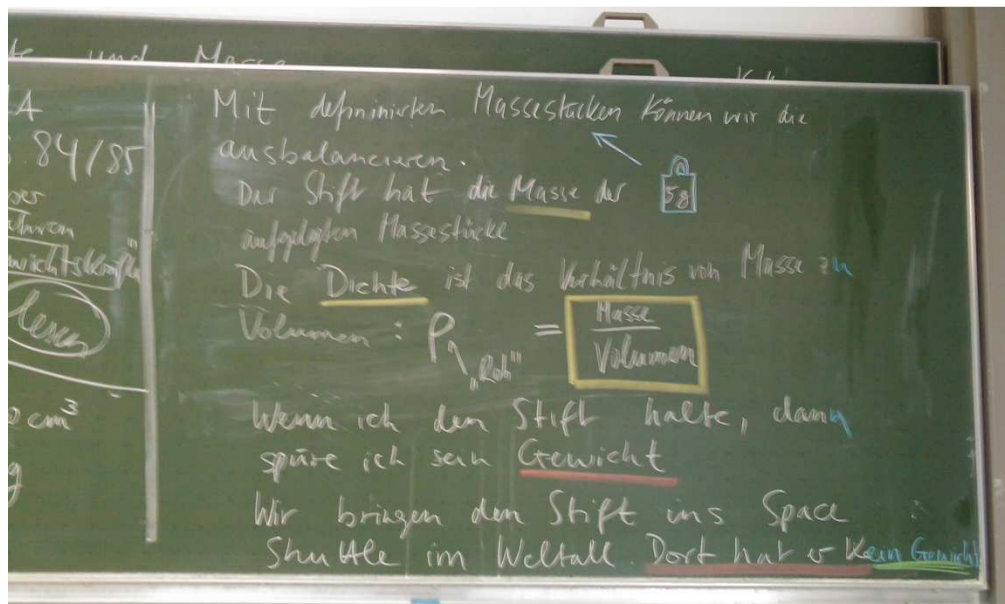 te und Masse
A
84/85
wichtskraft"
lesen
cm³
g
Mit defininierten Massestücken können wir die
ausbalancieren.
Der Stift hat die Masse der
5g
aufgelegten Massestücke
Die Dichte ist das Verhältnis von Masse zu
Volumen : ρ = Masse
Volumen
"Roh"
Wenn ich den Stift halte, dann
spüre ich sein Gewicht
Wir bringen den Stift ins Space
Shuttle im Weltall. Dort hat er kein Gewicht